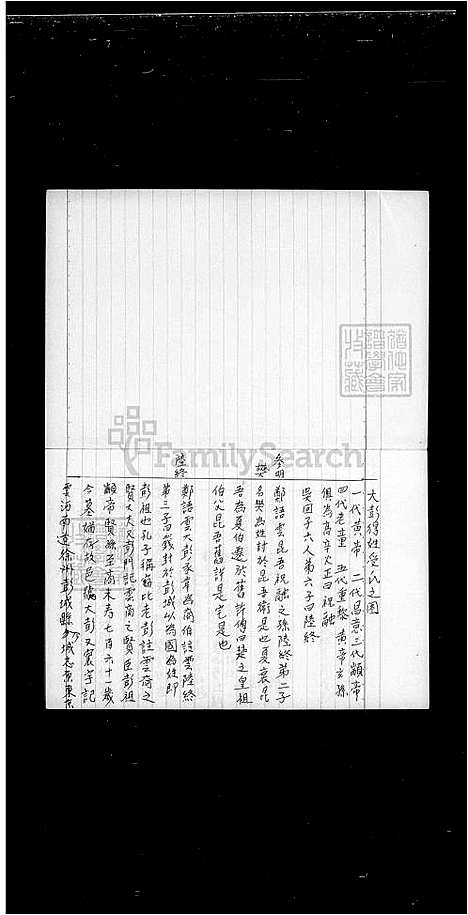 大彭得姓受氏之圖
一代黃帝 二代昌意 三代顓帝
四代老童 五代重黎 黃帝玄孫
俱為高辛火正曰祝融
吳回子六人第六子曰陸終
參明
鄭語雲昆吾祝融之孫陸終第二子
樊
名樊為姓封於昆吾衛是也夏衰昆
吾為夏伯遷於舊許傳曰楚之皇祖
伯父昆吾舊許是宅是也
陸終
鄭語雲大彭豕韋為商伯註雲陸終
第三子曰籛封於彭城以為國為姓即
彭祖也孔子稱竊比老彭註雲商之
賢大夫又彭門記雲商之賢臣彭祖
顓帝賢孫至商末壽七百六十一歲
今墓猶存故邑號大彭又寰宇記
雲河南道徐州彭城縣
FamilySearch